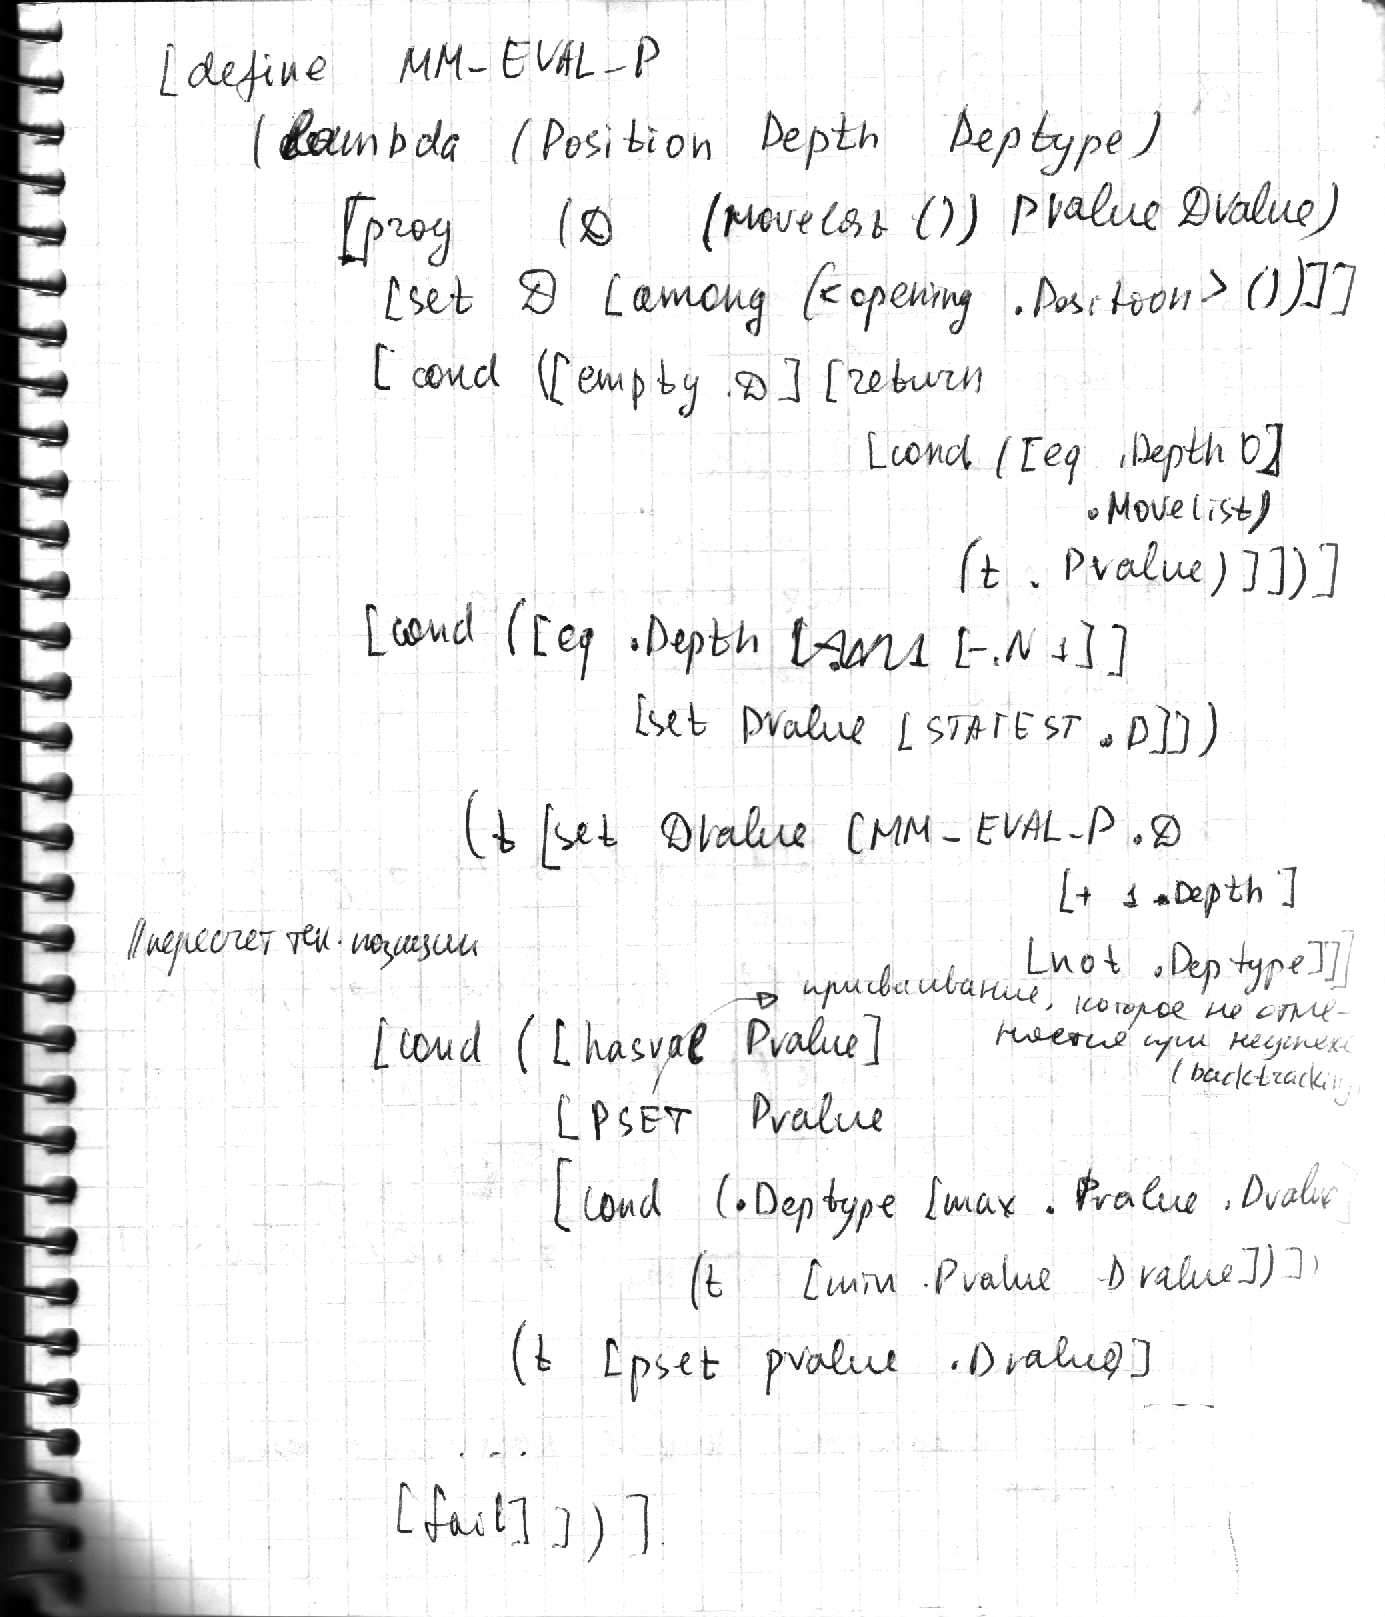 [define MM-EVAL-P
(lambda (Position Depth Deptype)
[prog (D (Movelist ()) Pvalue Dvalue)
[set D [among (<opening .Position> ())]]
[cond ([empty .D] [return
[cond ([eq .Depth 0]
.Movelist)
(t .Pvalue)]])]
[cond ([eq .Depth [- .N 1]]
[set Dvalue [STATEST .D]])
(t [set Dvalue [MM-EVAL-P .D
[+ 1 .Depth]
//пересчет тек. позиции
[not .Deptype]]]
присваивание, которое не отме-
няется при неуспехе
[cond ([hasval Pvalue]
(backtracking
[PSET Pvalue
[cond (.Deptype [max .Pvalue .Dvalue]
(t [min .Pvalue Dvalue])])
(t [pset pvalue .Dvalue)]
....
[fail]])]